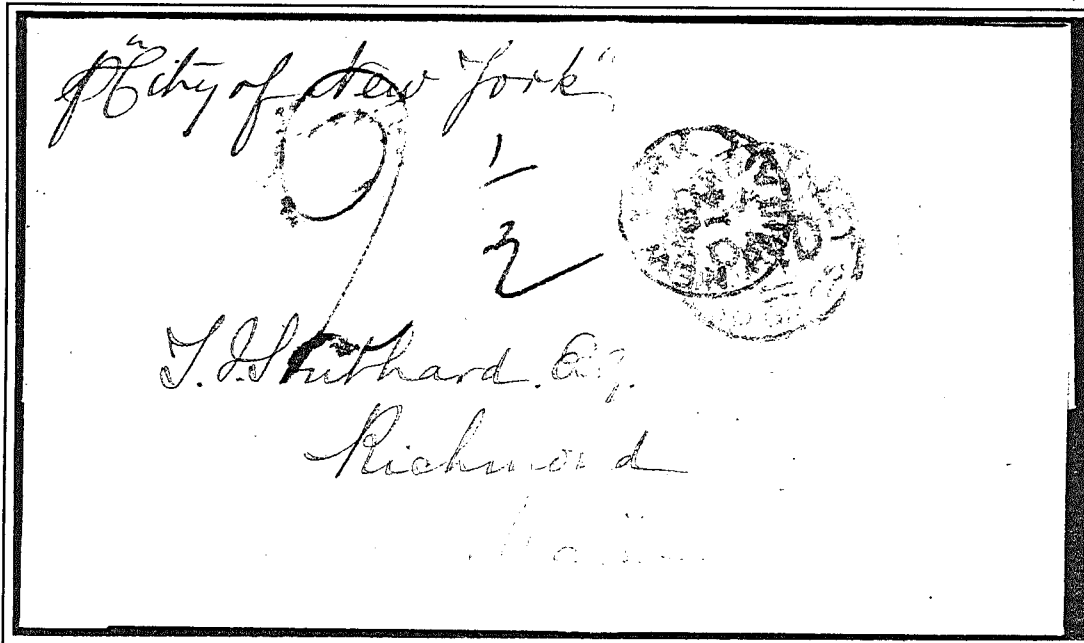 p "City of New York"
9 1/2
T. J. Southard. Esq.
Richmond
Maine
PAID